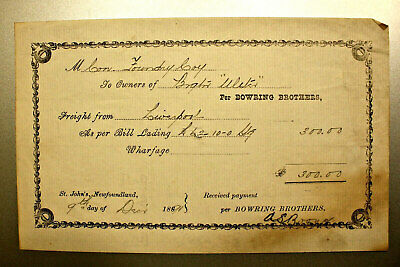 M Con. Foundry Coy
To Owners of Brigtn "Ulster"
Per BOWRING BROTHERS,
Freight from Liverpool
As per Bill Lading 10-0 Stg 300.00
Wharfage
$ 300.00
St. John's, Newfoundland, Received payment
9th day of Decr 188 per BOWRING BROTHERS.